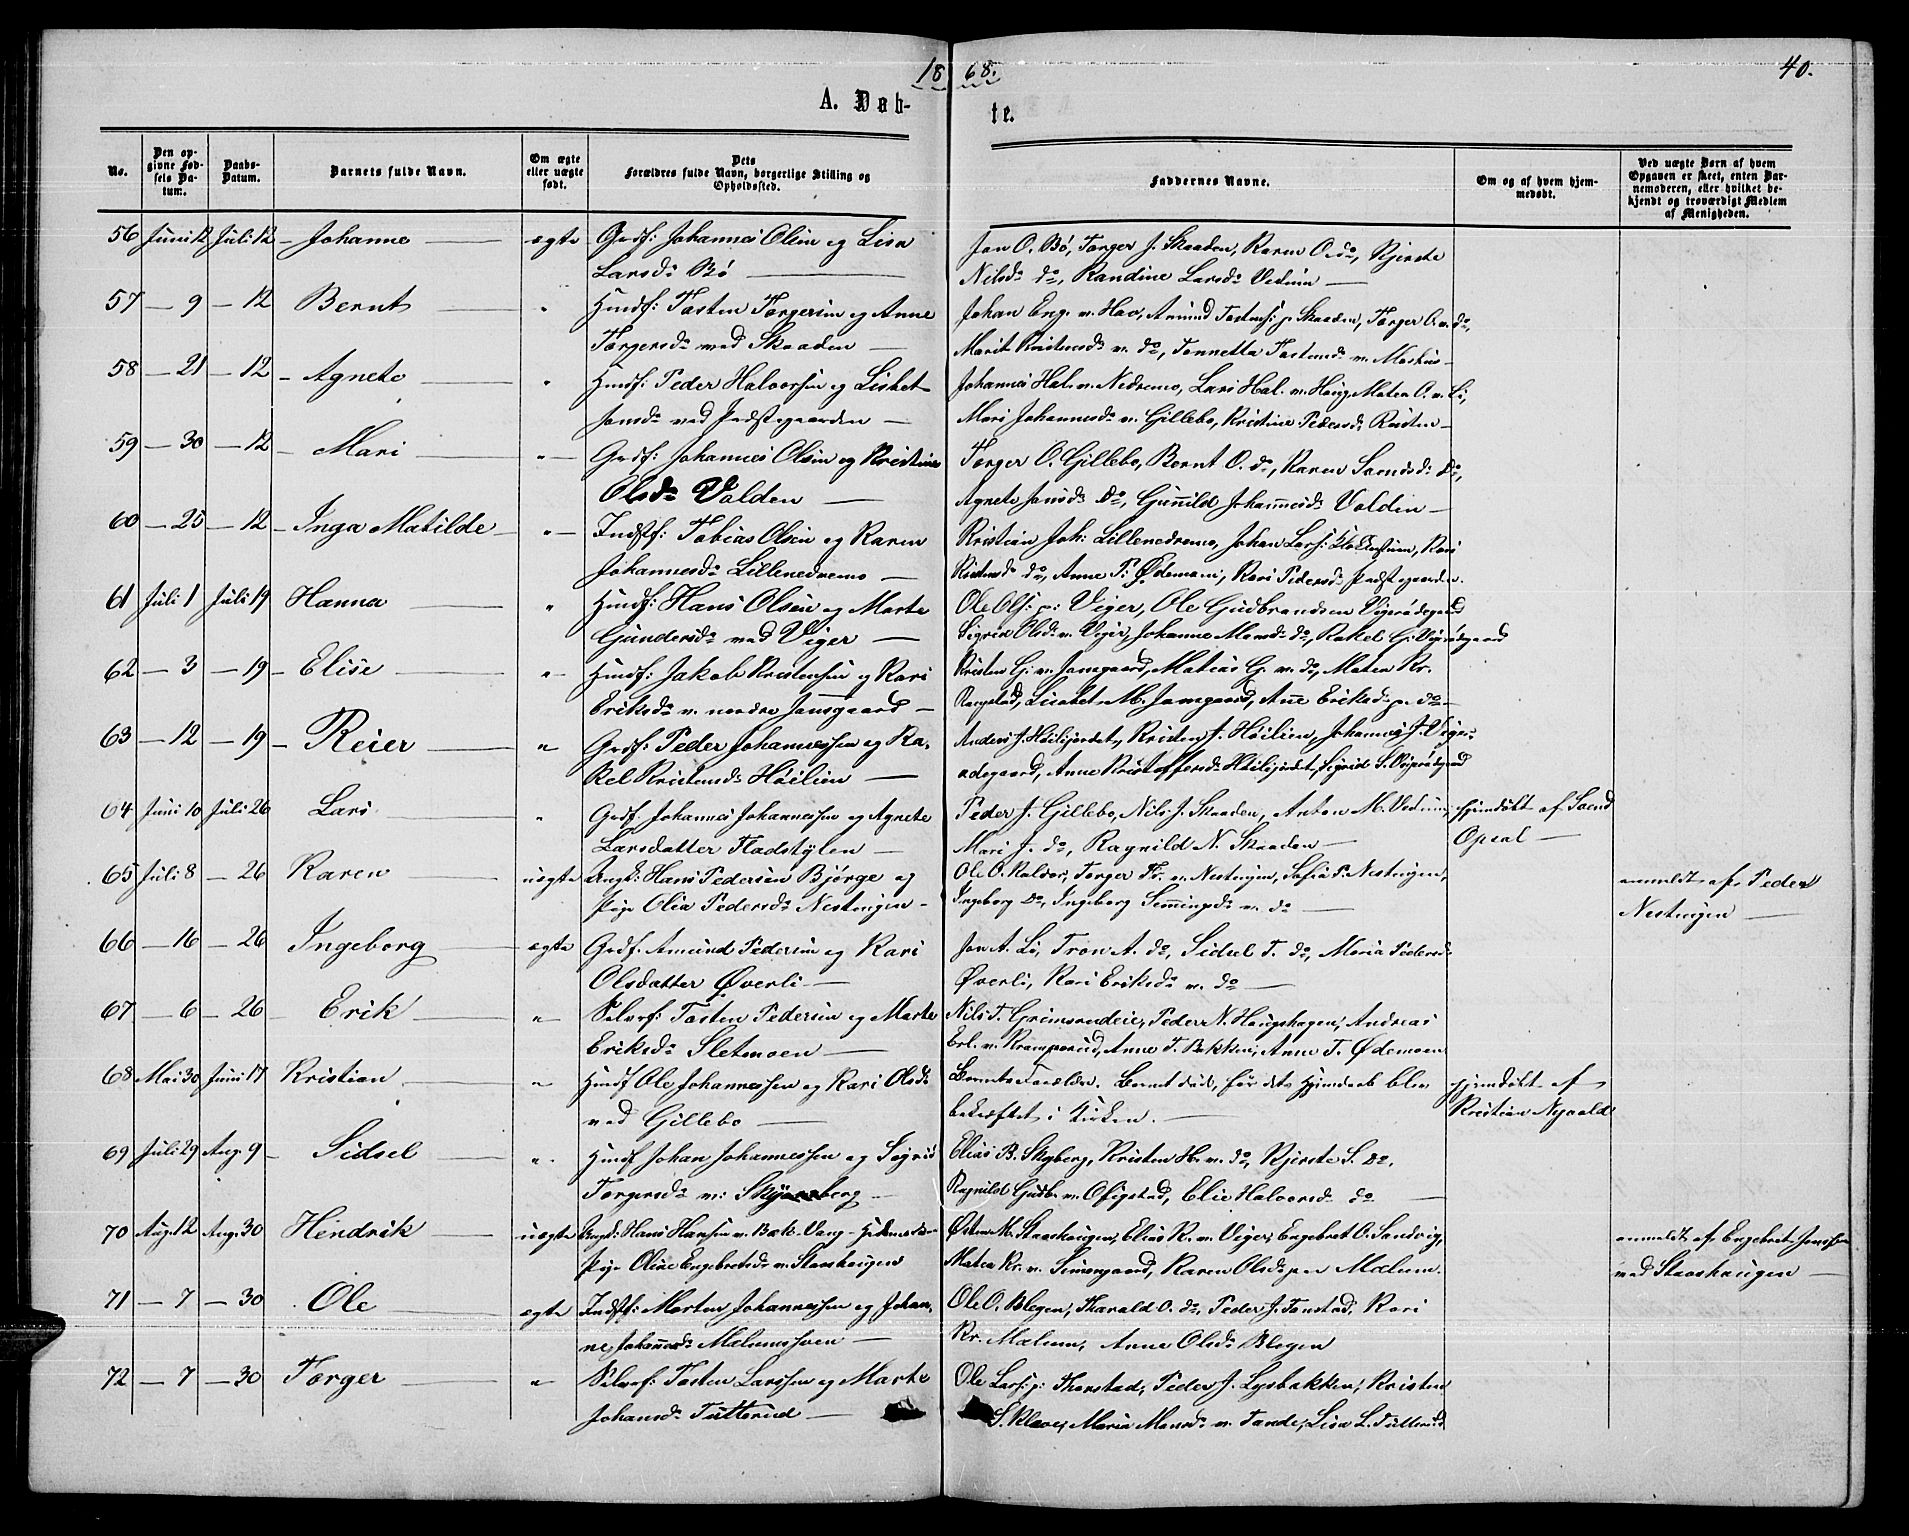 1868.
40.
A. Døb-
te.
No.
Den op-
givne Fød-
sels Da-
tum.
Daabs-
Datum.
Barnets fulde Navn.
Om ægte
eller uægte
født.
Dets
Forældres fulde Navn, borgerlige Stilling og
Opholdssted.
Faddernes Navne.
Om og af hvem hjem-
medøbt.
Ved uægte Børn af hvem
Opgaven er skeet, enten Bar-
nemoderen, eller hvilket be-
kjendt og troværdigt Medlem
af Menigheden.
56 Juni 12 Juli 12 Johanne ægte Grdf: Johannes Olsen og Lisa
Larsdr Bø
Jon O. Bø, Torger J. Skaaden, Karen O. do, Kjerste
Nilsdr do, Randine Larsdr Vedum
57 9 12 Bernt " Husmf: Tosten Torgersen og Anne
Torgersdr ved Skaaden
Johan Eng. v. Hov, Amund Tostens: p. Skaaden, Torger O. v. do,
Marit Kristensdr v. do, Tonnetta Tostensdr v.
58 21 12 Agnete " Husmf: Peder Halvorsen og Lisbet
Jonsdr ved Præstegaarden
Johannes Hal. v. Nedremo, Lars Hal. v. Haug, Matea O. v. Li,
Mari Johannesdr v. Gillebo, Kristine Pedersdr
59 30 12 Mari " Grdf: Johannes Olsen og Kristine
Olsdr Volden
Torger O. Gillebo, Bernt O. do, Karen do,
Agnete Jonsdr do, Gunnild Johannesdr Volden
60 25 12 Inga Matilde " Indstf: Tobias Olsen og Karen
Johannesdr Lillenedremo
Kristian Joh: Lillenedremo, Johan Lars: Kari
Kristensdr do, Anne P: Ødemoen, Kari Pedersdr Præstegaarden.
61 Juli 1 Juli 19 Hanna " Husmf: Hans Olsen og Marte
Gundersdr ved Viger
Ole Ols: p: Viger, Ole Gudbrandsen Vigerødegaard
Sigrid Olsdr v. Viger, Johanne Monsdr do, Rakel G. Vigerødegaard
62 3 19 Elise " Husmf: Jakob Kristensen og Kari
Eriksdr v. nordre Jonsgaard
Kristen G. v. Jonsgaard, Matias G. v. do, Matea Kr.
Rogstad, Lisabet M. Jonsgaard, Anne Eriksdr p. do
63 12 19 Reier " Grdf: Peder Johannessen og Ra-
kel Kristensdr Høilien
Anders J. Kristen J. Høilien, Johannes J. Viger-
ødegaard, Anne Kristoffersdr Sigrid S. Vigerødegaard
64 Juni 10 Juli 26 Lars " Grdf. Johannes Johannessen og Agnete
Larsdatter Fladstylen
Peder J. Gillebo, Nils J. Skaaden, Anton M. Vedum,
Mari J. do, Ragnild N. Skaaden
hjemdøbt af
Opsal
65 Juli 8 26 Karen uægte Ungk: Hans Pedersen Bjørge og
Pige Olea Pedersdr Nestingen
Ole O. Kolder, Torger Th. v. Nestingen, Sofia P. Nestingen,
Ingeborg do, Ingeborg Semmingsdr v. do
anmeldt af Peder
Nestingen
66 16 26 Ingeborg ægte Grdf. Amund Pedersen og Kari
Olsdatter Øverli
Jon A. Li, Tron A. do, Sidsel T. do, Maria Pedersd:
Øverli, Kari Eriksdr v. do
67 6 26 Erik " Selvef: Tosten Pedersen og Marte
Eriksdr Sletmoen
Nils T. Grimsrudeie, Peder N. Haugshagen, Andreas
Erl. v. Kramperud, Anne T. Bakken, Anne T. Ødemoen
68 Mai 30 Juni 17 Kristian " Husmf Ole Johannessen og Kari Olsdr
ved Gillebo
Barnets Forældre. Barnet død, før dets Hjemdaab blev
bekræftet i Kirken.
hjemdøbt af
Kristian Nygaard
69 Juli 29 Aug. 9 Sidsel " Husmf Johan Johannessen og Sigrid
Torgersdr v: Skyberg
Elias B. Skyberg, Kristen H. v. do, Kjerste S. do,
Ragnild Gudb. v. Ofigstad, Elie Halvorsdr do
70 Aug. 12 Aug. 30 Hendrik uægte Ungk: Hans Hansen v. Bak Vang Hedemarken
Pige Oline Engebretsdr v. Staashaugen
Østen M. Staashaugen, Elias R. v. Viger, Engebret O. Sandvig,
Matea Kr. v. Simengaard, Karen Olsdr Mælum.
anmeldt af Engebret Jonssen
ved Staashaugen
71 7 30 Ole ægte Indstf: Morten Johannessen og Johan-
ne Johannesdr Mælumssveen
Ole O. Blegen, Tharald O. do, Peder J. Tonstad, Kari
Kr. Mælum, Anne Olsdr Blegen
72 7 30 Torger " Selvef: Tosten Larssen og Marte
Johansdr Tutterud
Ole Lars: p: Thorstad, Peder J. Lysbakken, Kristen
S. Kleve, Maria Monsdr v. Tande, Lisa L. Tutterud